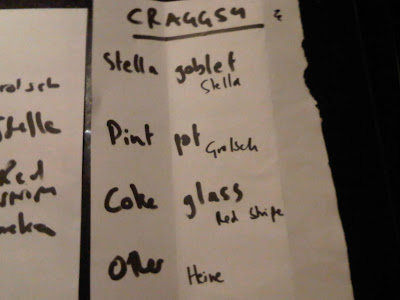 Red
CRAGGSY &
Stella goblet
Stella
Pint pot
Grolsch
Coke glass
Red Stripe
Other
Heine